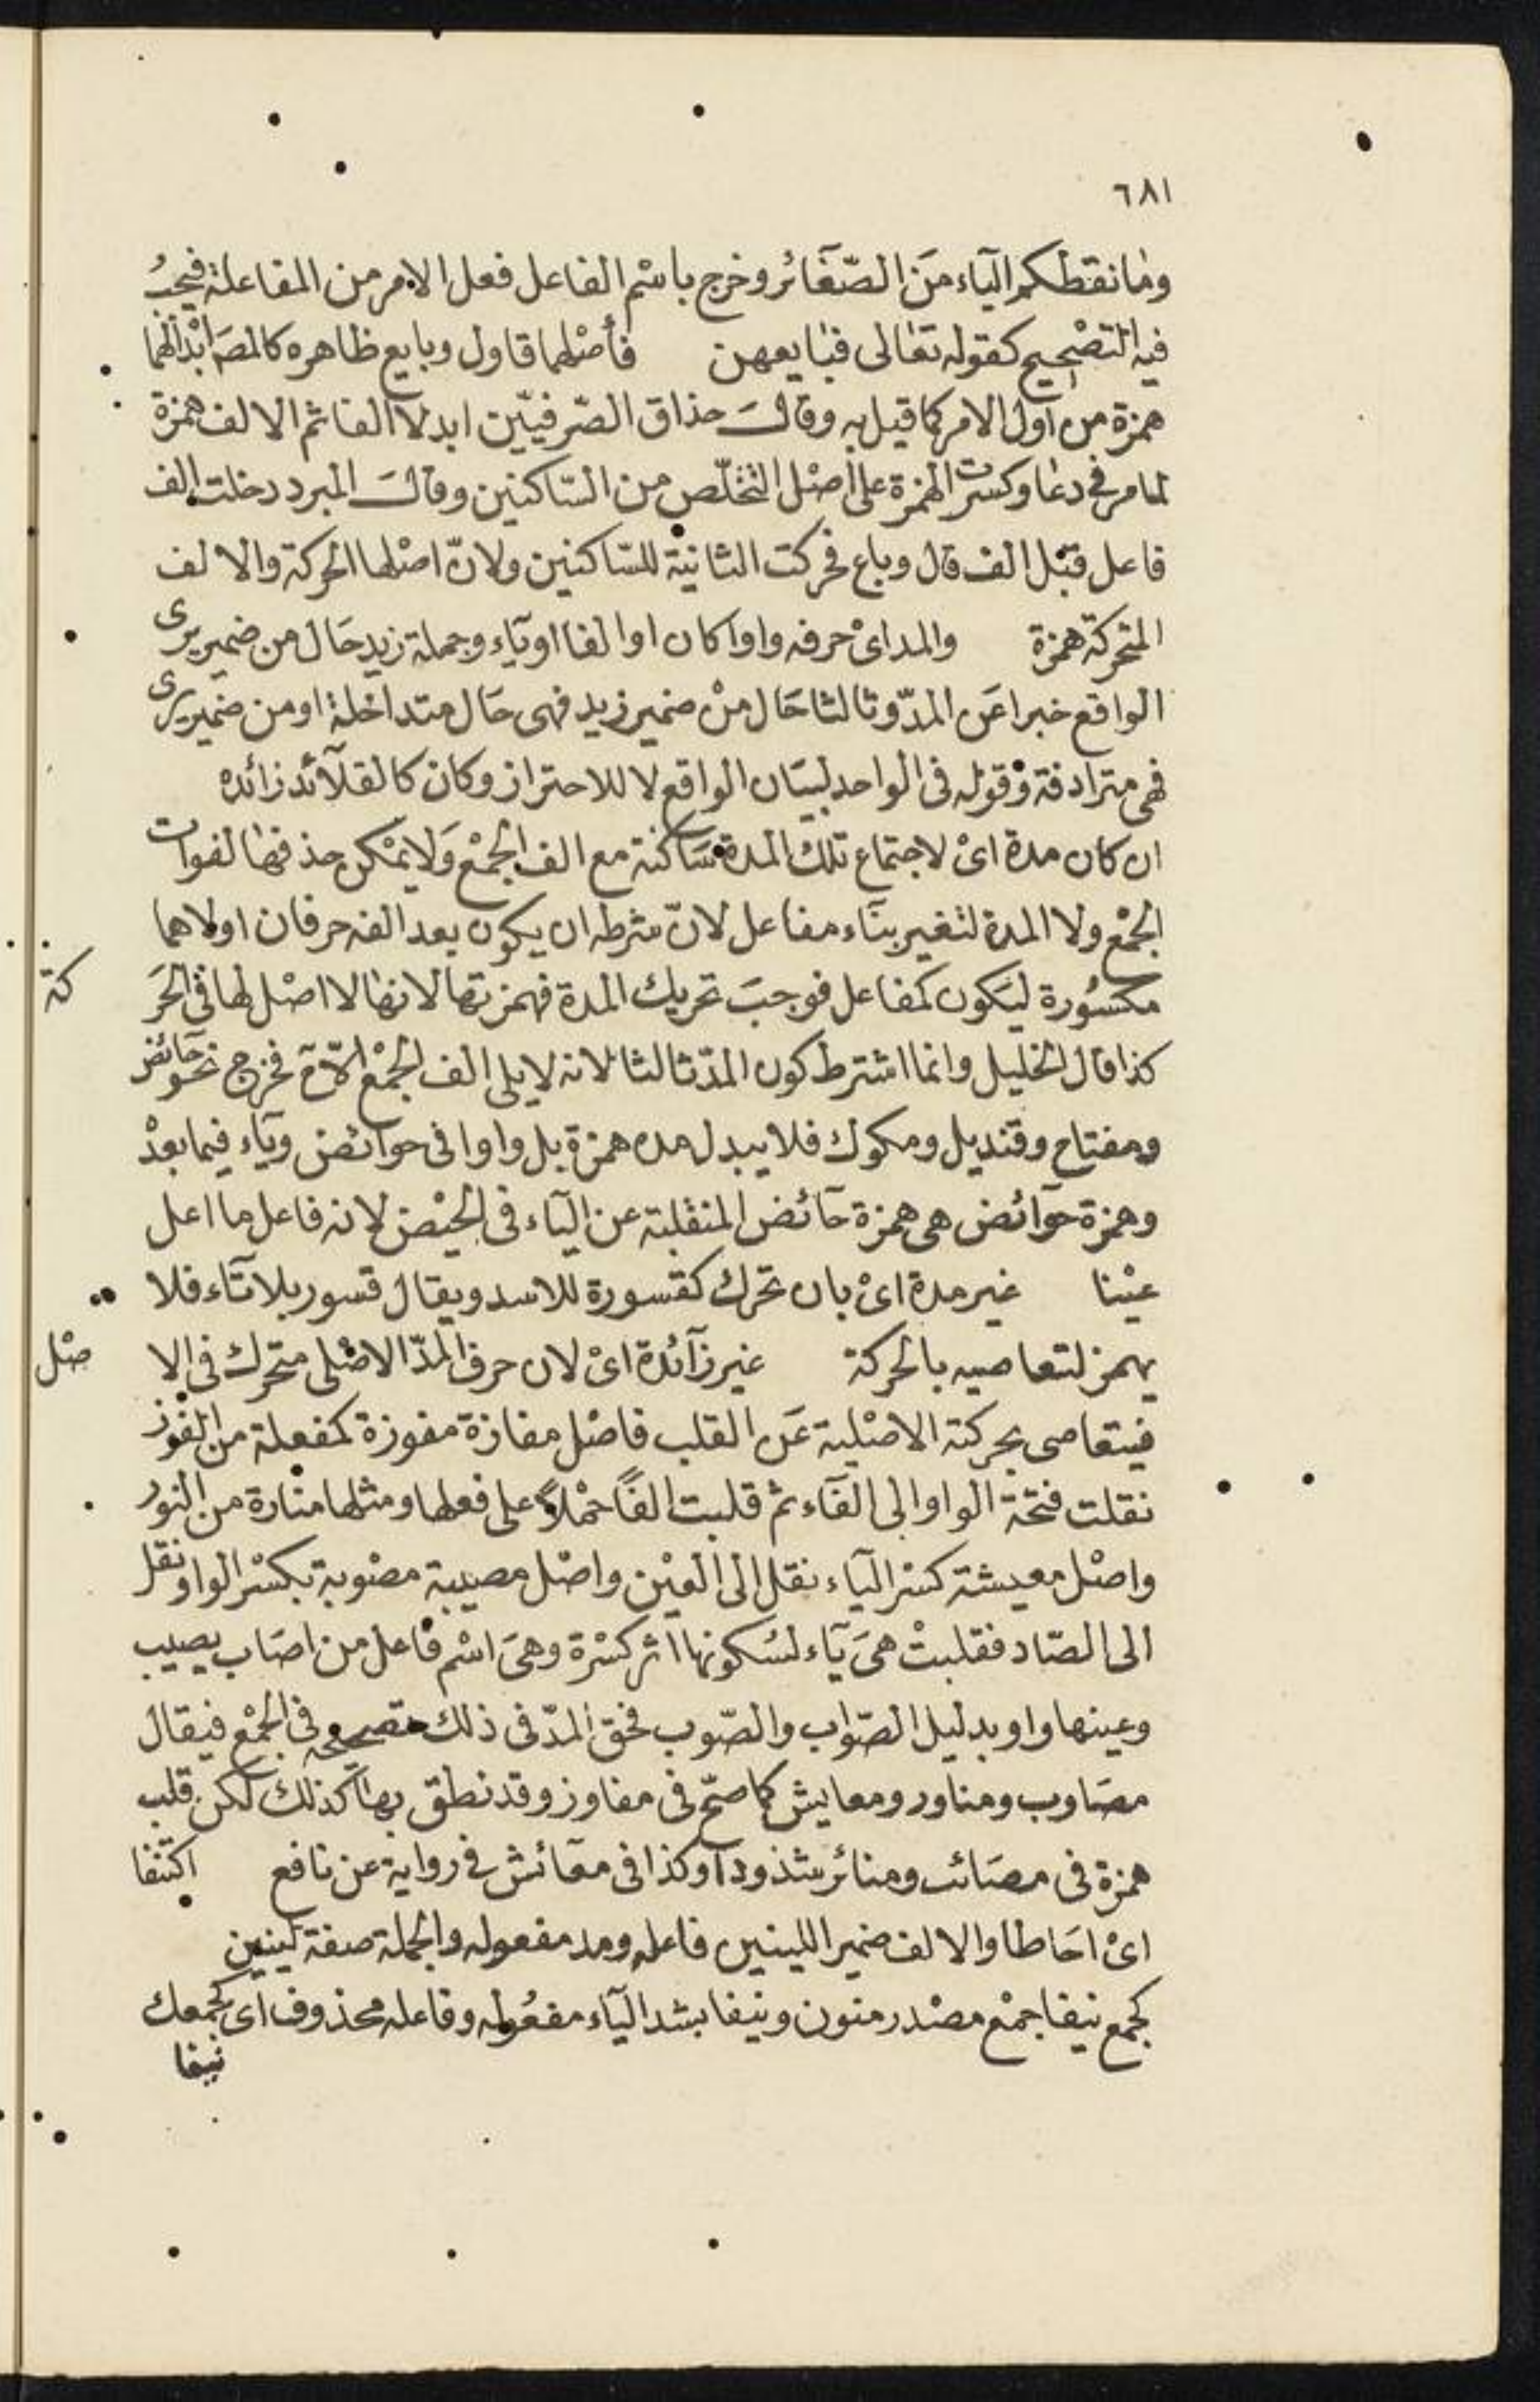 ٦٨١
وما نقطكم الياء من الصّغائر وخرج باسْم الفاعل فعل الامر من المفاعلة فيجبُ
فيه التصْحيح كقوله تعالى فبايعهن فأصْلهما قاول وبايع ظاهره كالمصَ ابْدالهما
همزة من اول الامر كما قيل به وقال حذاق الصّرفيّين ابدلا الفا ثم الالف همزة
لما مر فى دعا وكسرت الهمزة على اصْل التخلّص من السّاكنين وقال المبرد دخلت الف
فاعل قبْل الف قال وباع فحركت الثانية للسّاكنين ولانّ اصْلها الحركة والالف
المتحركة همزة والمد اىْ حرفه واوا كان او الفا او يآء وجملة زيد حَال من ضمير يرى
الواقع خبرا عَن المدّ وثالثا حَال منْ ضمير زيد فهى حَال متداخلة او من ضمير يرى
فهى مترادفة وقوله فى الواحد لبيَان الواقع لا للاحتراز وكان كالقلآئد زائده
ان كان مدة اىْ لاجتماع تلك المدة سَاكنة مع الف الجمْع وَلا يمْكن حذفها لفوات
الجمْع ولا المدة لتغير بنَاء مفاعل لانّ شرطه ان يكون بعد الفه حرفان اولاهما
مكسُورة ليَكون كمفاعل فوجبَ تحريك المدة فهمزتها لانها لا اصْل لها فى الحَر كة
كذا قال الخليل وانما اشترط كون المدّ ثالثا لانه لا يلى الف الجمْع الاّ فخرج نحو حآئض
ومفتاح وقنديل ومكوك فلا يبدل مده همزة بل واوا فى حوائض ويآء فيما بعدْ
وهمزة حوآئض هى همزة حآئض المنقلبة عن اليآء فى الحيْض لانه فاعل ما اعل
عيْنا غير مدة اىْ بان تحرك كقسورة للاسد ويقال قسور بلا تآء فلا
يهمز لتعاصيه بالحركة غير زآئدة اىْ لان حرف المدّ الاصْلى متحرك فى الا صْل
فيتعاصى بحركته الاصْلية عَن القلب فاصْل مفازة مفوزة كمفعلة من الفوْز
نقلت فتحة الواو الى الفآء ثم قلبت الفًا حمْلاً على فعلها ومثلها منارة من النور
واصْل معيشة كسْر اليآء نقل الى العيْن واصْل مصيبة مصْوبة بكسْر الواو نقل
الى الصّاد فقلبتْ هىَ يآء لسُكونها اثر كسْرة وهىَ اسْم فاعل من اصَاب يصيب
وعينها واو بدليل الصّواب والصّوب فحق المدّ فى ذلك تصحيحه فى الجمْع فيقال
مصَاوب ومناور ومعايش كما صحّ فى مفاوز وقد نطق بها كذلك لكن قلب
همزة فى مصَائب ومنائر شذوذا وكذا فى معآئش فى رواية عن نافع اكتنفا
اىْ احَاطا والالف ضمير اللينين فاعله ومد مفعوله والجملة صفة لينين
كجمع نيفا جمْع مصْدر منون ونيفا بشد اليآء مفعُوله وفاعله محذوف اى كجمعك
نيفا